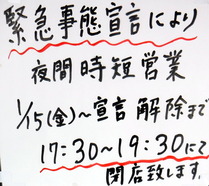 緊急事態宣言により
夜間時短営業
1/15(金)〜宣言解除まで
17:30〜19:30にて
閉店致します。